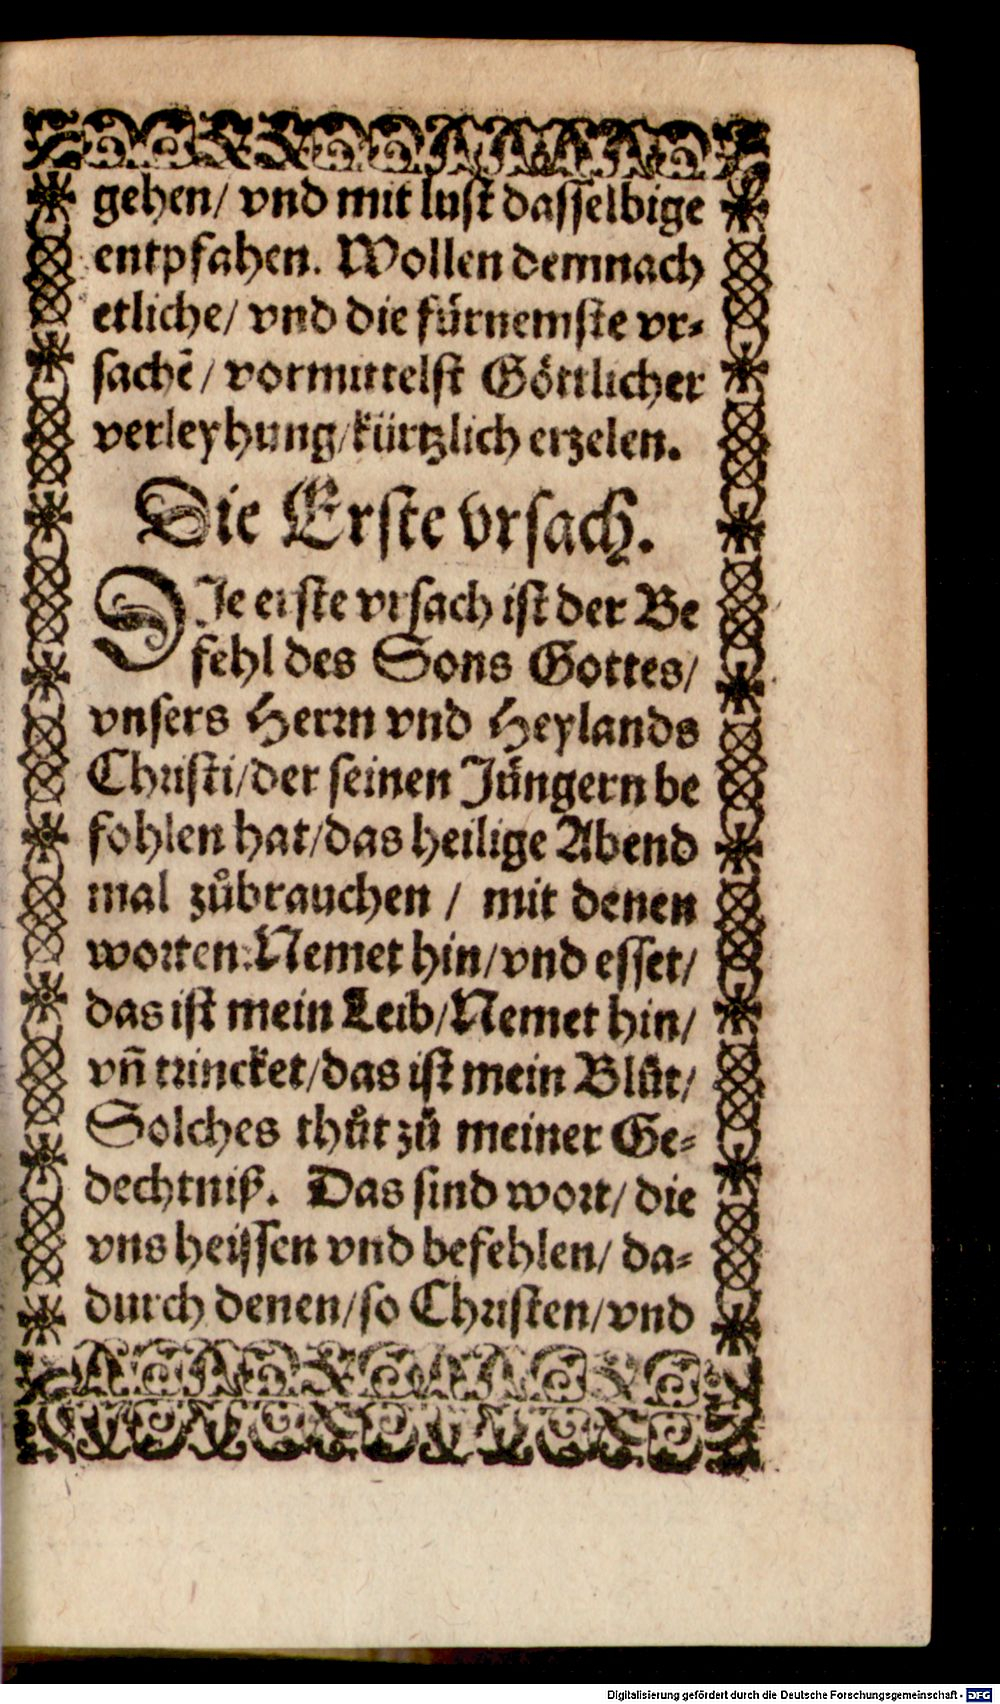 gehen/ vnd mit lust dasselbige
entpfahen. Wollen demnach
etliche/ vnd die fürnemste vr⸗
sachē/ vormittelst Göttlicher
verleyhung/kürtzlich erzelen.
Die Erste vrsach.
DIe erste vrsach ist der Be
fehl des Sons Gottes/
vnsers Herrn vnd Heylands
Christi/der seinen Jüngern be
fohlen hat/das heilige Abend
mal zůbrauchen / mit denen
worten: Nemet hin/vnd esset/
das ist mein Leib/Nemet hin/
vñ trincket/das ist mein Blůt/
Solches thůt zů meiner Ge⸗
dechtniß. Das sind wort/ die
vns heissen vnd befehlen/ da⸗
durch denen/so Christen/vnd
Digitalisierung gefördert durch die Deutsche Forschungsgemeinschaft - DFG